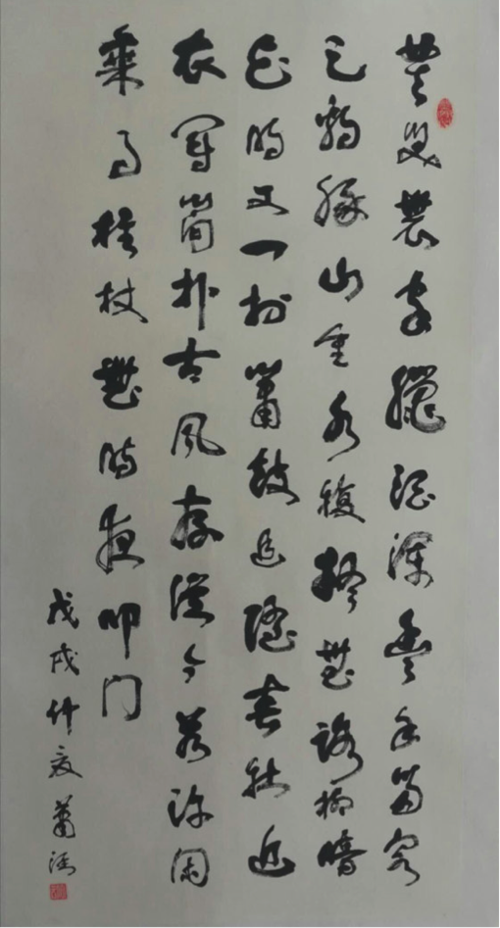 莫笑農家臘酒渾豐年留客
足鷄豚山重水複疑無路柳暗
花明又一村簫鼓追隨春社近
衣冠簡朴古風存從今若許閑
乘月拄杖無時夜叩门
戊戌仲夏蕭